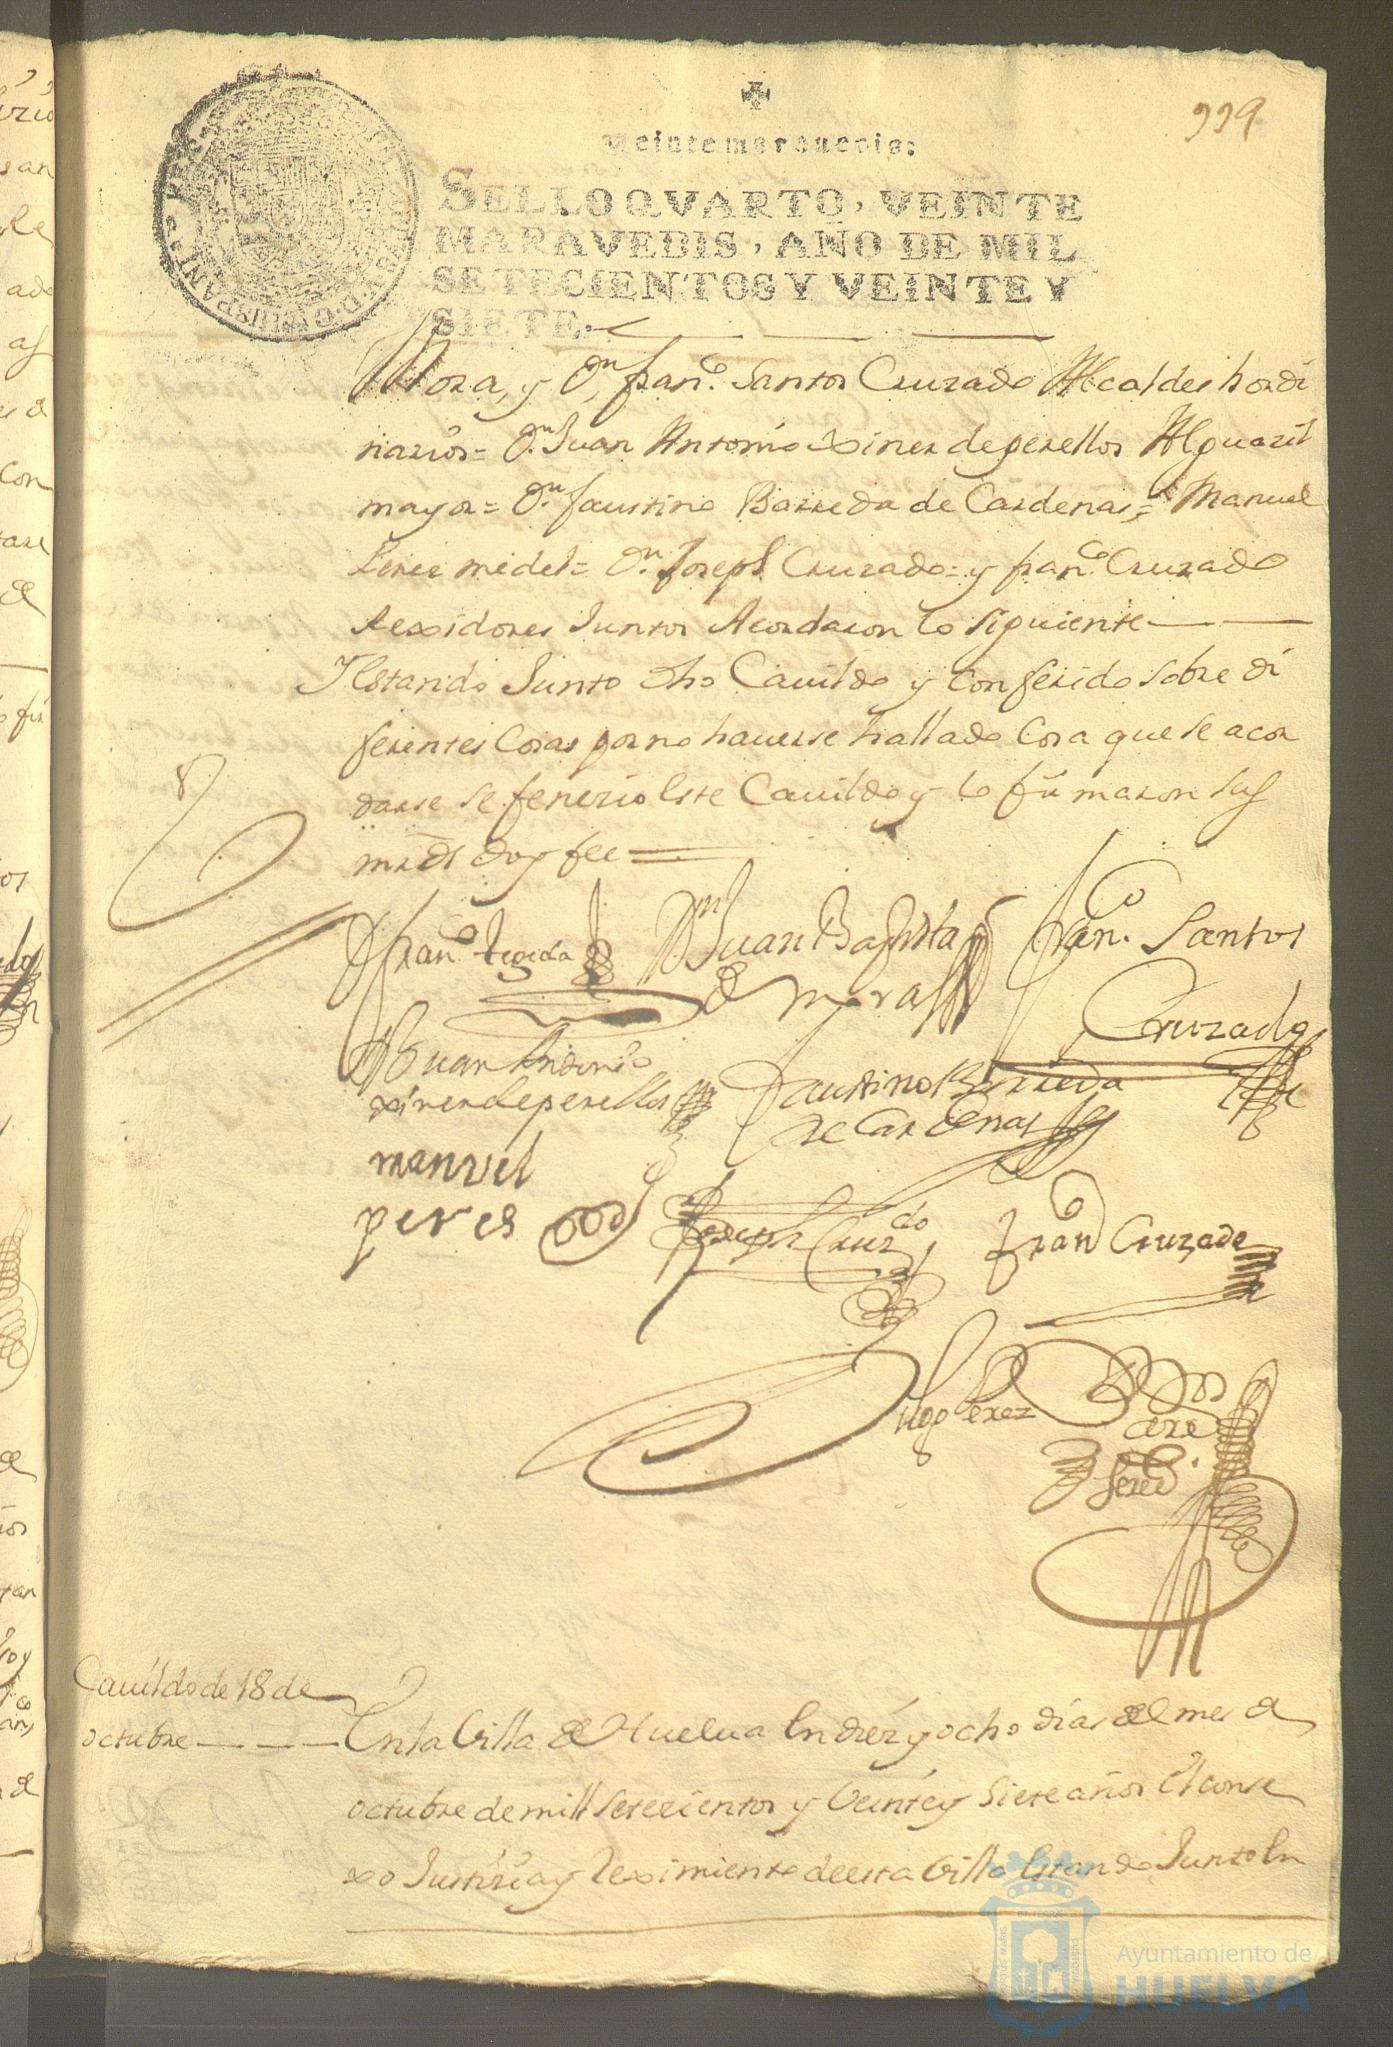 Veinte marauedis:
SELLO QVARTO, VEINTE
MARAVEDIS, AÑO DE MIL
SETECIENTOS Y VEINTE Y
SIETE.
Mora, y Dn. franco. Santos Cruzado Alcaldes hordi
narios = Dn. Juan Antonio Xiner de perellos Alguazil
mayor = Dn. faustino Barreda de Cardenas = Manuel
Perez midel = Dn. Joseph Cruzado = y franco. Cruzado
Rexidores Juntos Acordaron lo siguiente
Y Estando Junto dho Cauildo y Conferido sobre di
ferentes Cosas por no hauerse hallado Cosa que se acor
darse se fenecio este Cauildo y lo firmaron sus
mrds doy fee
Dn franco. Dn Juan Baptista Franco. Santos
de mora Cruzado
Dn Juan Antonio
xiner de perellos Faustino Barreda
de Cardenas
manuel
peres Joseph Cruzdo Franco Cruzado
Diego Perez
Cauildo de 18 de
octubre
En la Villa de Huelua en diez y ocho dias del mes de
octubre de mill setecientos y Veinte y siete años el conse
xo Justizia y Reximiento de esta Villa estando Junto en
Ayuntamiento de
HUELVA